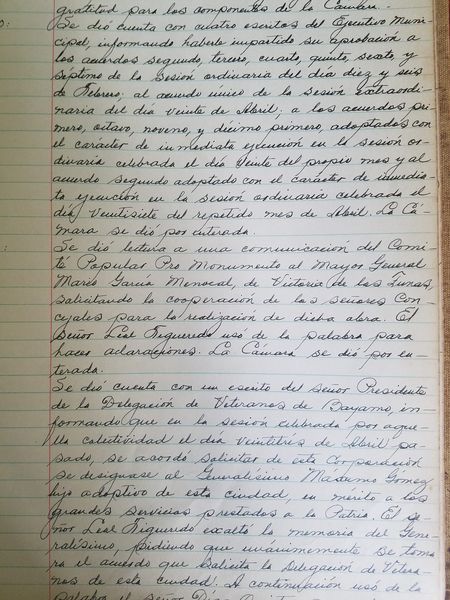 gratitud para los componentes de la Cámara.
Se dió cuenta con cuatro escritos del Ejecutivo Muni-
cipal, informando haberle impartido su aprobación a
los acuerdos segundo, tercero, cuarto, quinto, sexto, y
septimo de la sesión ordinaria del día diez y seis
de Febrero; al acuerdo único de la sesión extraordi-
naria del día Veinte de Abril; a los acuerdos pri
mero, octavo, noveno, y décimo primero, adoptados con
el carácter de inmediata ejecución en la sesión or-
dinaria celebrada el día Veinte del propio mes y al
acuerdo segundo adoptado con el carácter de inmedia-
ta ejecución en la sesión ordinaria celebrada el
día Veintisiete del repetido mes de Abril. La Cá-
mara se dió por enterada.
Se dió lectura a una comunicación del Comi-
té Popular Pro Monumento al Mayor General
Mario García Menocal, de Victoria de las Tunas,
solicitando la cooperación de los señores Con-
cejales para la realización de dicha obra. El
señor Leal Figueredo usó de la palabra para
hacer aclaraciones. La Cámara se dió por en-
terada.
Se dió cuenta con un escrito del señor Presidente
de la Delegación de Veteranos de Bayamo, in-
formando que en la sesión celebrada por aque-
lla colectividad el día veintitrés de Abril pa-
sado, se acordó solicitar de esta Corporación
se designase al Generalísimo Máximo Gomez,
hijo adoptivo de esta ciudad, en mérito a los
grandes servicios prestados a la Patria. El se-
ñor Leal Figueredo exaltó la memoria del Gene-
ralísimo, pidiendo que unanimemente se toma
ra el acuerdo que solicita la Delegación de Vetera-
nos de esta ciudad. A continuación usó de la
palabra el señor